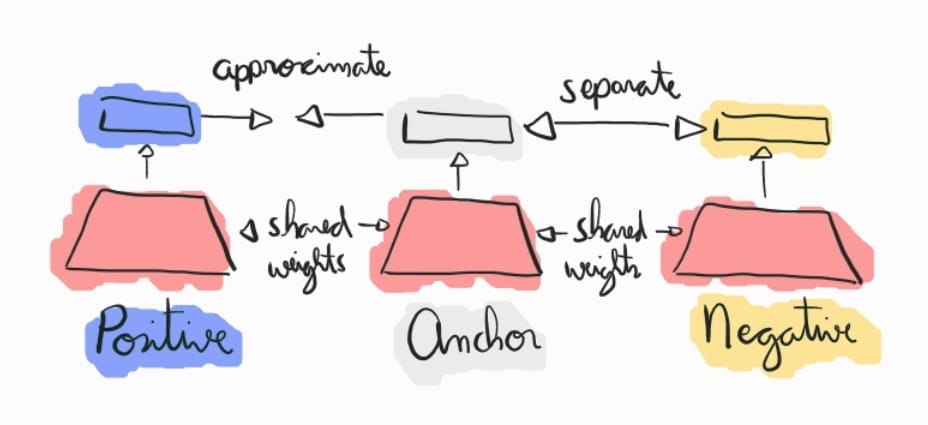 approximate
separate
shared
weights
shared
weights
Positive
Anchor
Negative